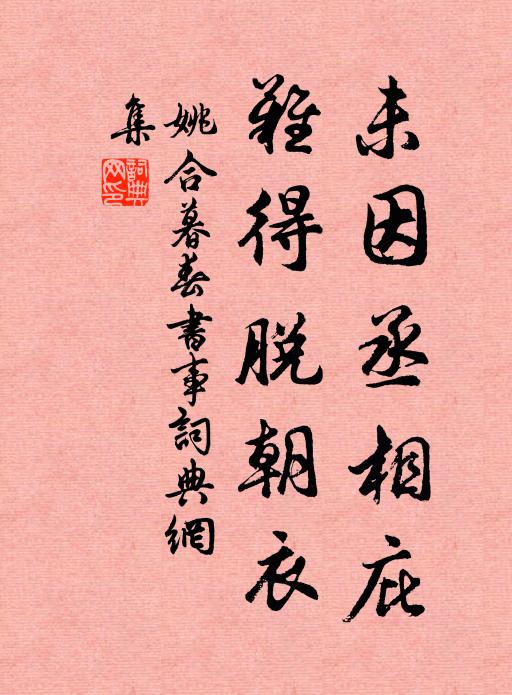 未因丞相庇
難得脱朝衣
姚合暮春書事詞典網
集
詞典
网印